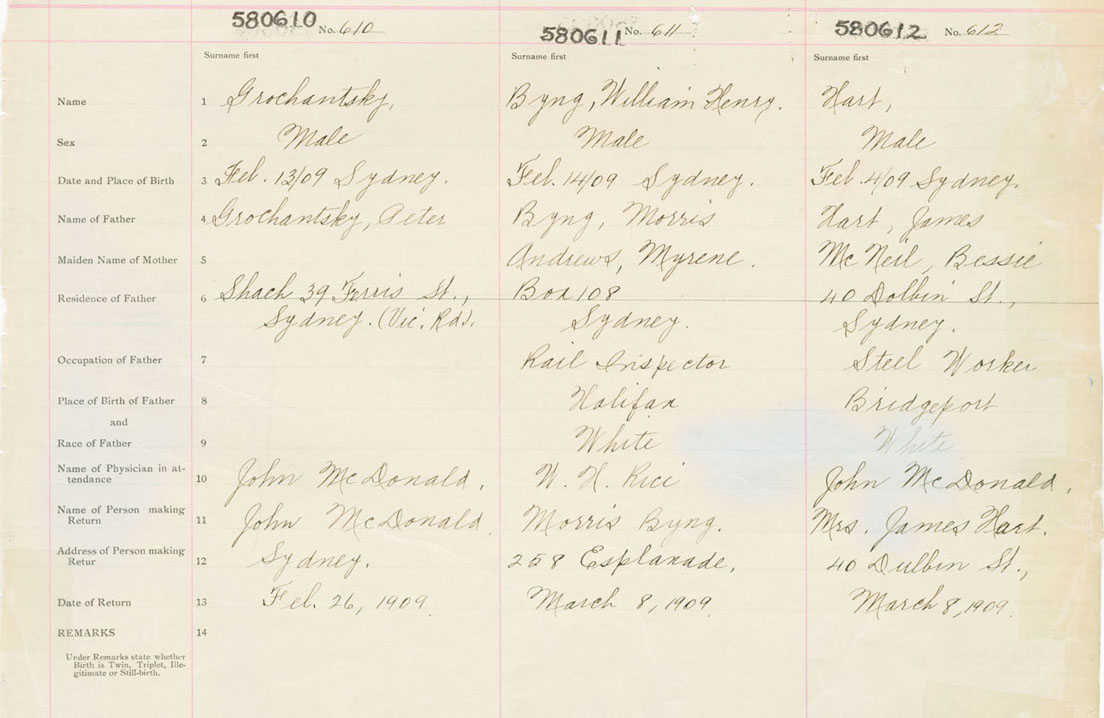 580610 No. 610 580611 No. 611 580612 No. 612
Surname first Surname first Surname first
Name 1 Grochantsky, Byng, William Henry. Hart,
Sex 2 Male Male Male
Date and Place of Birth 3 Feb. 13/09 Sydney. Feb. 14/09 Sydney. Feb. 4/09 Sydney.
Name of Father 4 Grochantsky, Peter Byng, Morris Hart, James
Maiden Name of Mother 5 Andrews, Myrene. McNeil, Bessie
Residence of Father 6 Shack 39 Ferris St., Box 108 40 Dolbin St.,
Sydney. (Vic. Rd). Sydney. Sydney.
Occupation of Father 7 Rail Inspector Steel Worker
Place of Birth of Father 8 Halifax Bridgeport
and
Race of Father 9 White White
Name of Physician in at-
tendance 10 John McDonald. W. H. Rice John McDonald.
Name of Person making
Return 11 John McDonald Morris Byng. Mrs. James Hart.
Address of Person making
Retur 12 Sydney. 258 Esplanade. 40 Dulbin St.,
Date of Return 13 Feb. 26, 1909. March 8, 1909 March 8, 1909.
REMARKS 14
Under Remarks state whether
Birth is Twin, Triplet, Ille-
gitimate or Still-birth.